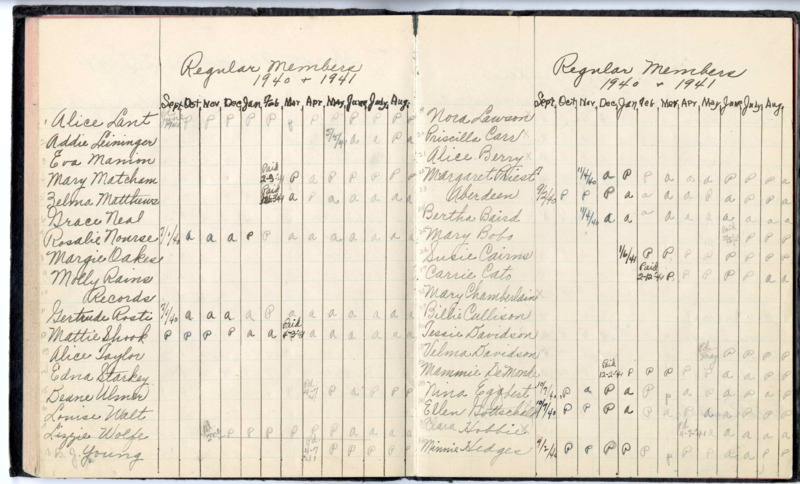 Regular Members
1940 + 1941
Sept. Oct. Nov. Dec. Jan. Feb. Mar. Apr. May. June. July. Aug.
Alice Lant P P P P P P P P P P
Addie Leininger a a P a
Eva Manion
Mary Matcham Paid P a P P P P P P
Zelma Matthews Paid a P a a a a a
Grace Neal
Rosalie Nourse a a a P P a a a a a a a
Margie Oakes
Molly Rains
Records
Gertrude Rosti a a a a P
Mattie Shook P P P P a a Paid a a a a a
Alice Taylor
Edna Starkey
Deane Ulmer 4-7 P a P P P
Louise Walt
Lizzie Wolfe P P P P P P a a a a
Young 4-7 P P P P
Regular Members
1940 + 1941
Sept. Oct. Nov. Dec. Jan. Feb. Mar. Apr. May. June. July. Aug.
Nora Lawson
Priscilla Cars X
Alice Berry X
Margaret Priest 11/4/40 a P P a a a P P P a
Aberdeen 9/2/40 P P P a a a a P a P a
Bertha Baird 11/4/40 a a a a a a a a a
Mary Bobo P P P
Susie Cairns 1/6/41 P P P P P P P
Carrie Cato Paid 2-12-41 P P P P a a
Mary Chamberlain X
Billie Cullison
Jessie Davidson
Velma Davidson P P P
Mammie DeMork Paid 12-2-41 P P P P P a a a
Nina Eggbert 10/7/40 P a P a P P a P P P P
Ellen 10/7/40 P P P a P a P a a a
Clara Hobbie X a a a a
Minnie Hedges 9/2/40 P P P P P P P P P P P